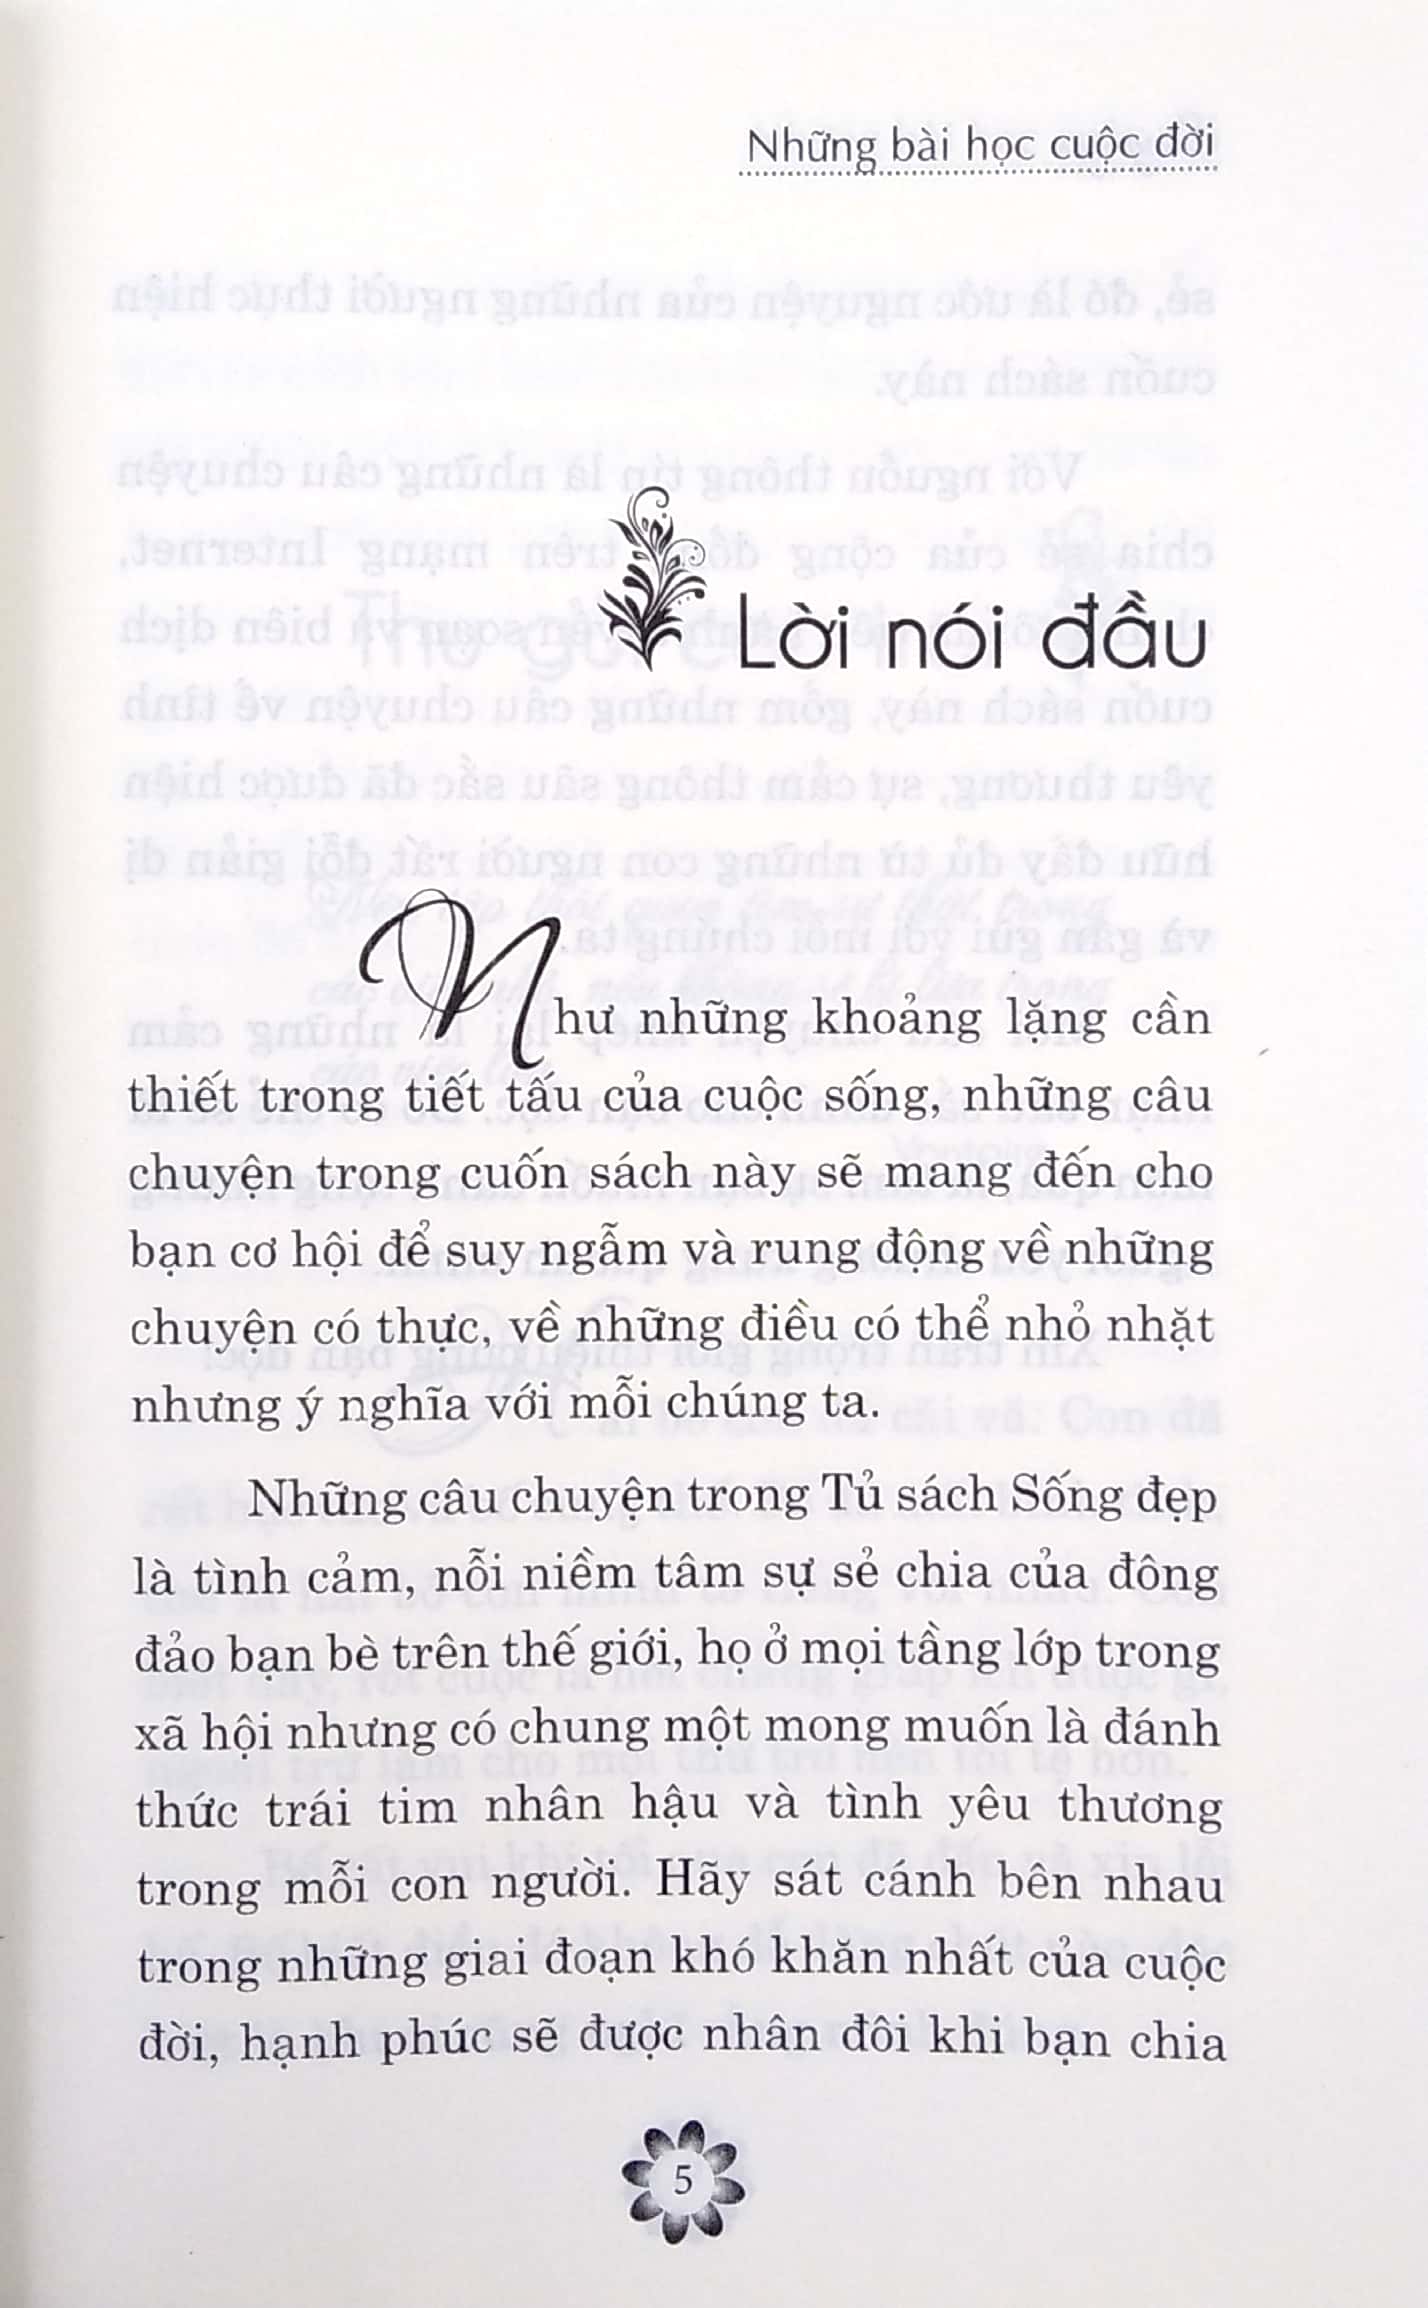 Những bài học cuộc đời
Lời nói đầu
Như những khoảng lặng cần
thiết trong tiết tấu của cuộc sống, những câu
chuyện trong cuốn sách này sẽ mang đến cho
bạn cơ hội để suy ngẫm và rung động về những
chuyện có thực, về những điều có thể nhỏ nhặt
nhưng ý nghĩa với mỗi chúng ta.
Những câu chuyện trong Tủ sách Sống đẹp
là tình cảm, nỗi niềm tâm sự sẻ chia của đông
đảo bạn bè trên thế giới, họ ở mọi tầng lớp trong
xã hội nhưng có chung một mong muốn là đánh
thức trái tim nhân hậu và tình yêu thương
trong mỗi con người. Hãy sát cánh bên nhau
trong những giai đoạn khó khăn nhất của cuộc
đời, hạnh phúc sẽ được nhân đôi khi bạn chia
5